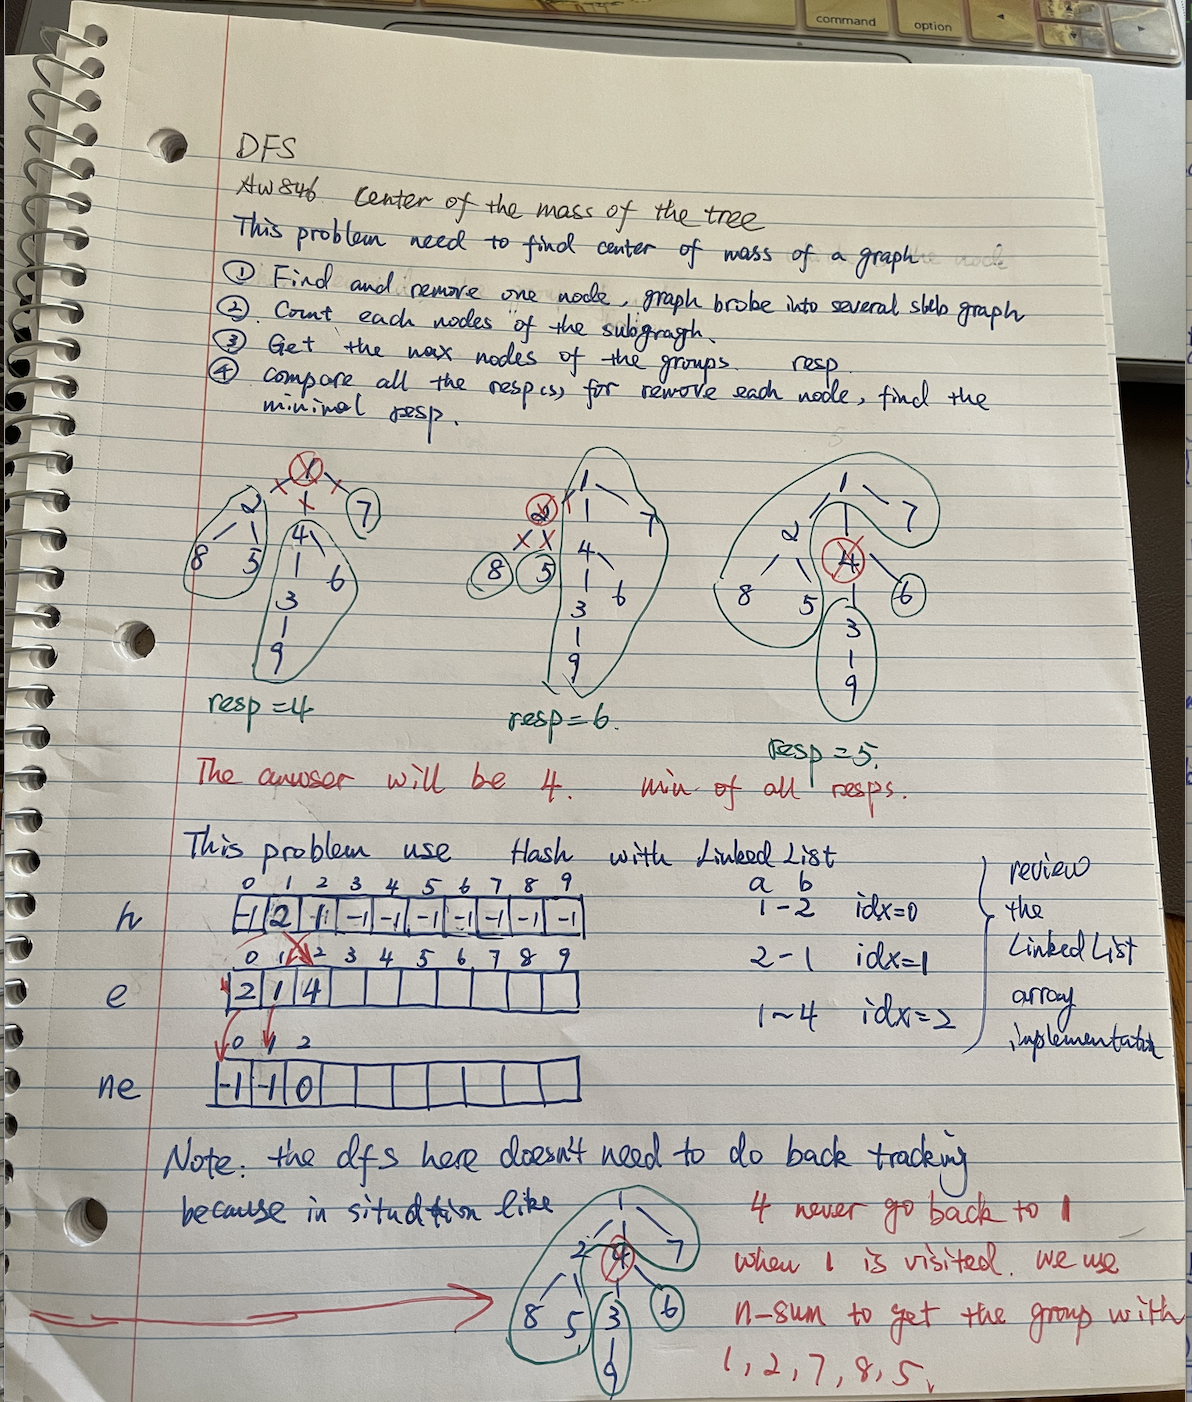 command
option
DFS
AW846 Center of the mass of the tree
This problem need to find center of mass of a graph
① Find and remove one node, graph broke into several sub graph
② Count each nodes of the subgragh.
③ Get the max nodes of the groups. resp.
④ Compare all the resp(s) for remove each node, find the
minimal resp.
1
2 7
8 5 4 6
3
9
resp = 4
1
2 7
8 5 4 6
3
9
resp = 6.
1
2 7
4
8 5 6
3
9
resp = 5.
The anwser will be 4. min of all resps.
This problem use Hash with Linked List
0 1 2 3 4 5 6 7 8 9
h -1 2 -1 -1 -1 -1 -1 -1 -1 -1
0 1 2 3 4 5 6 7 8 9
e 2 1 4
0 1 2
ne -1 -1 0
a b
1 - 2 idx=0
2 - 1 idx=1
1 ~ 4 idx=2
review
the
Linked List
array
implementation
Note: the dfs here doesn't need to do back tracking
because in situation like
1
2 4 7
8 5 3 6
9
4 never go back to 1
when 1 is visited. we use
n-sum to get the group with
1, 2, 7, 8, 5.